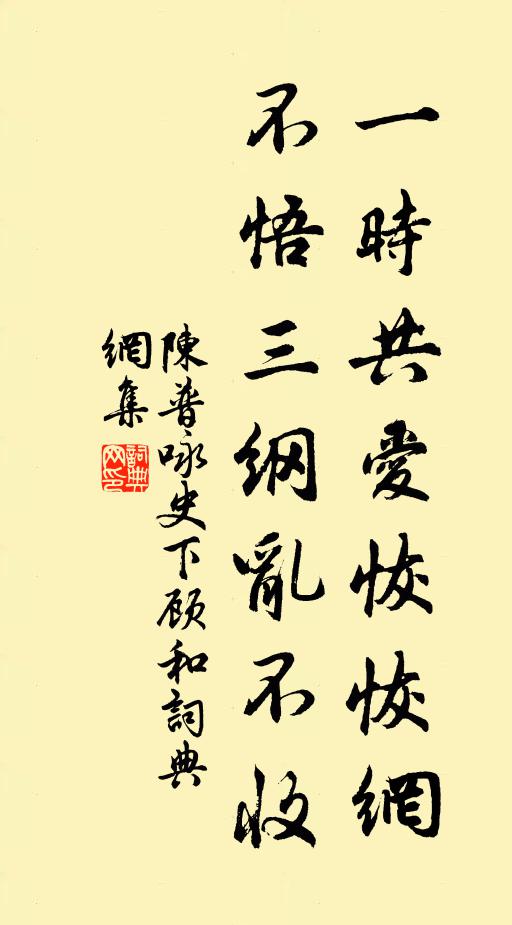 一時共愛恢恢網
不悟三纲亂不收
陳普咏史下顾和詞典
網集
詞典
网印